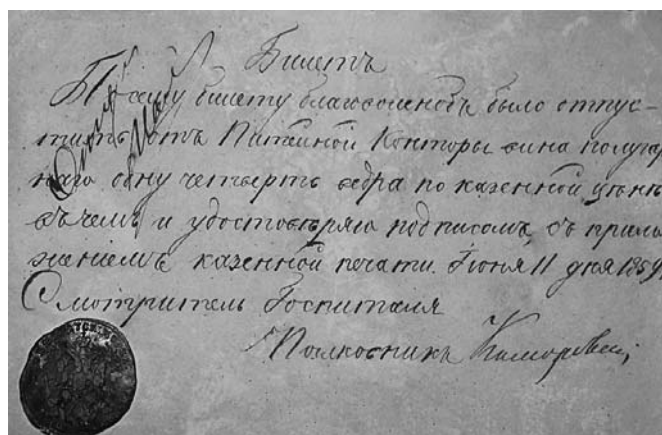 Билетъ
По сему билету благоволеноъ было отпус-
тить отъ Питейной Конторы вина полугар
наго одну четверть ведра по казенной цѣнѣ
въ чемъ и удостовѣряю подписомъ съ прило
жениемъ казенной печати. Іюня 11 дня 1859
Смотритель Госпиталя
Полковникъ